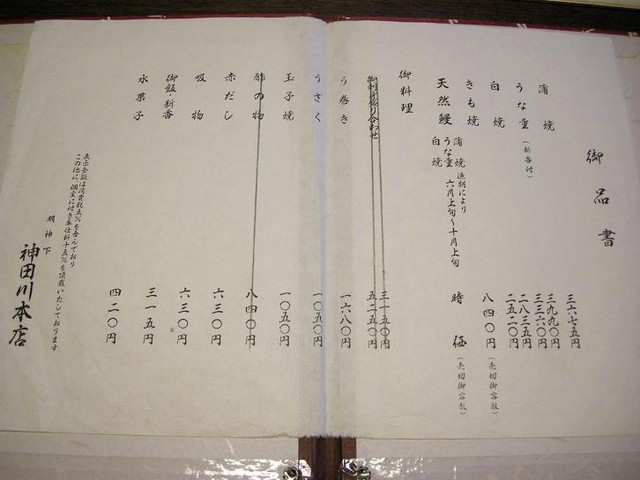 御品書
蒲焼
三六七五円
うな重(新香付)
三九九〇円
三三六〇円
白焼
二八三五円
二五二〇円
きも焼
八四〇円(売切御容赦)
天然鰻
蒲焼
うな重
白焼
漁期により
六月上旬～十月上旬
時価(売切御容赦)
御料理
御刺身盛り合わせ
三一五〇円
五二五〇円
う巻き
一六八〇円
うざく
一〇五〇円
玉子焼
一〇五〇円
酢の物
八四〇円
赤だし
六三〇円
吸物
六三〇円
御飯・新香
三一五円
水菓子
四二〇円
表示金額は消費税五%を含んでおり
この他に個室に付き奉仕料十五%を頂戴いたしております
明神下
神田川本店